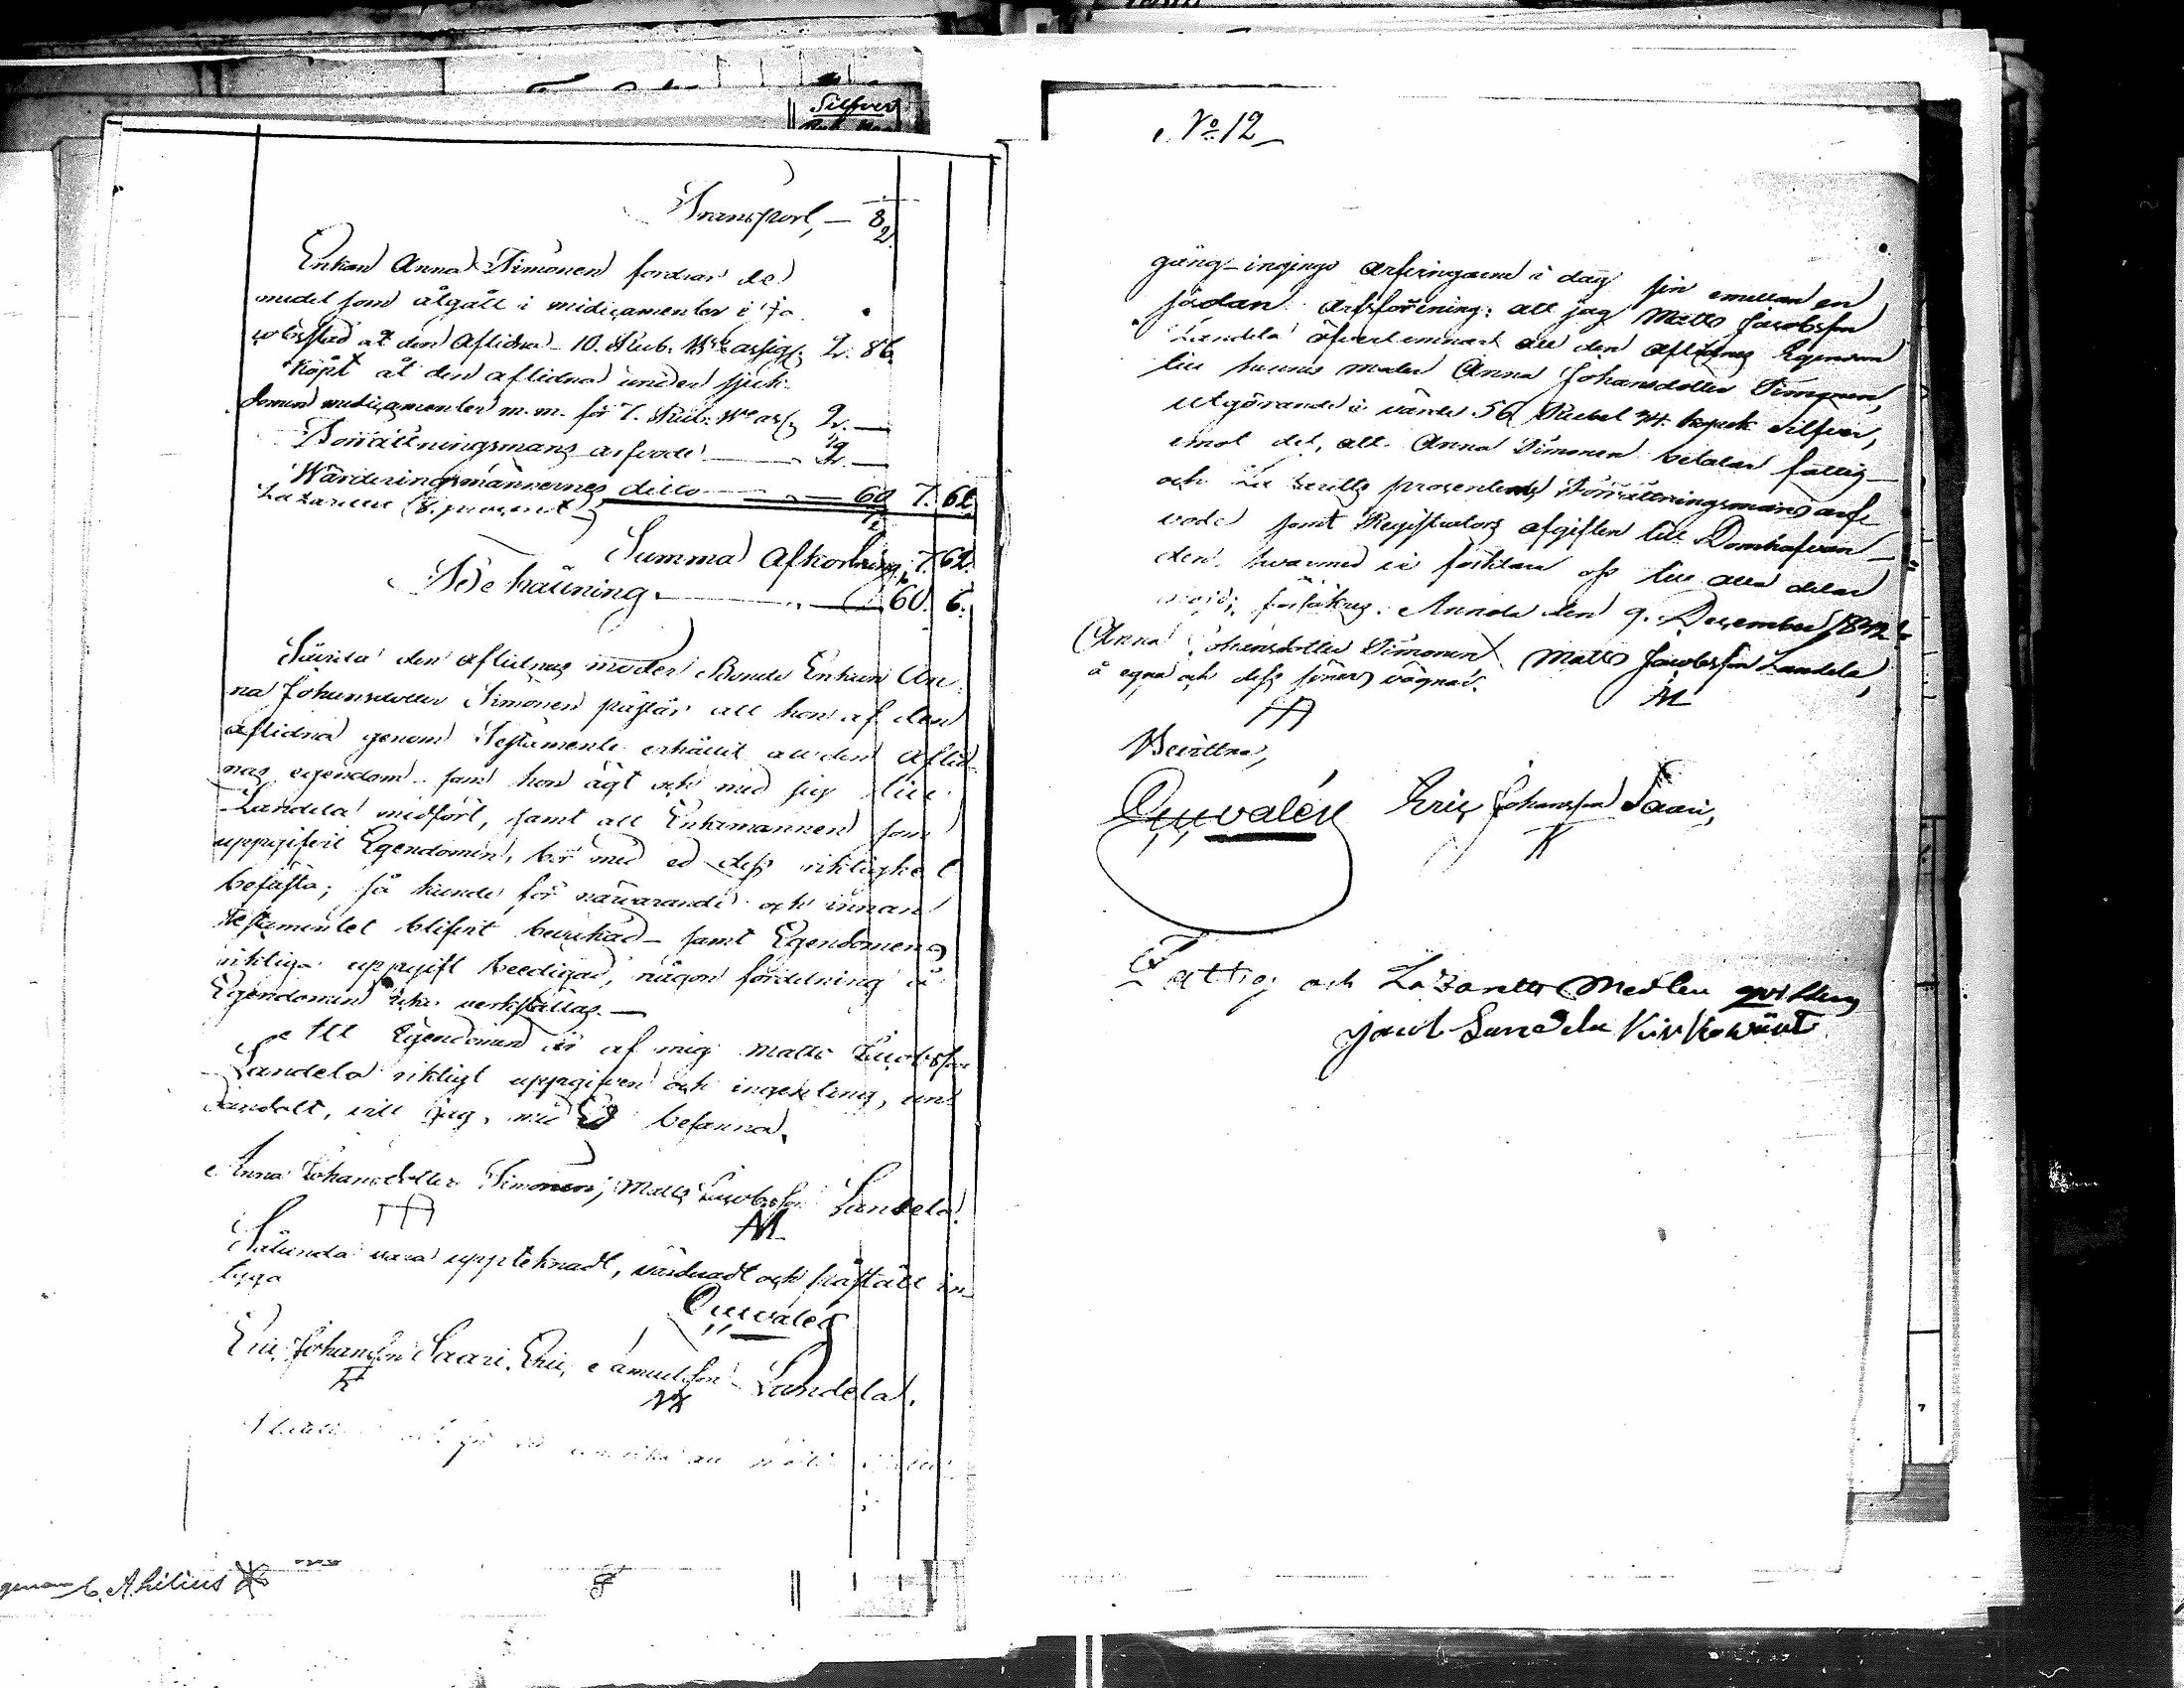 Silfver
Transport,
Enkan Anna Timonen fordrar de
medel som åtgått i midicamenter i Ja
cobsstad åt den Aflidna 10. Rub. B:co assig; 2. 86.
Köpt åt den aflidna under sjuk-
domen medicamenter m.m. för 7. Rub. B:co ass; 2. —
Förrättningsmans arfvode
Wärderingsmännernes ditto — 60 7. 62.
Lazarett (8. procent
Summa Afkortning, 7. 62.
Behållning. — 60. 6.
Såvida den aflidnas moder Bonde Enkan An
na Johansdotter Timonen påstår att hon af den
aflidna genom Testamente erhållit all den aflid-
nas egendom som hon ägt och med sig till
Landela medfört, samt att Enkemannen som
uppgifvit Egendomen, bör med ed dess riktighet
befästa; så kunde för närvarande och innan
testamentet blifvit bevekad samt Egendomens
riktiga uppgift beedigad, någon fördelning å
Egendomen icke verkställas. —
Att Egendomen är af mig Matts Jacobsson
Landela riktigt uppgifven och ingenting, un
dandolt, vill jag, med Ed befanna.
Anna Johansdotter Timonen, Matts Jacobsson Landela.
M
Sålunda vara upptecknadt, värderadt och påstått in
tyga
Eric Johansson Saari. Eric Samuelsson Landela.
genom C. A. Lilius
No 12
gång ingingo arfvingarne i dag sin emellan en
sådan arfsförening: att jag Matts Jacobsson
Landela öfverlemnat all den aflidnas Egendom
till hennes moder Anna Johansdotter Timonen,
utgörande i värde 56 Rubel 74. kopek silfver,
emot det, att Anna Timonen betalar fattig
och Lazaretts procenterne Förrättningsmans arf
vode samt Registrators afgiften till Domhafvan
den, hvarmed vi förklara oss till alla delar
försäkras. Annola den 9. December 1842.
Anna Johansdotter Timonen Matts Jacobsson Landela,
å egna och dess söners vägnar. M
Bevittna,
Eric Johansson Saari,
Fattig och Lazaretts Medlen qvitteras
Jacob Landela Kirkowärt